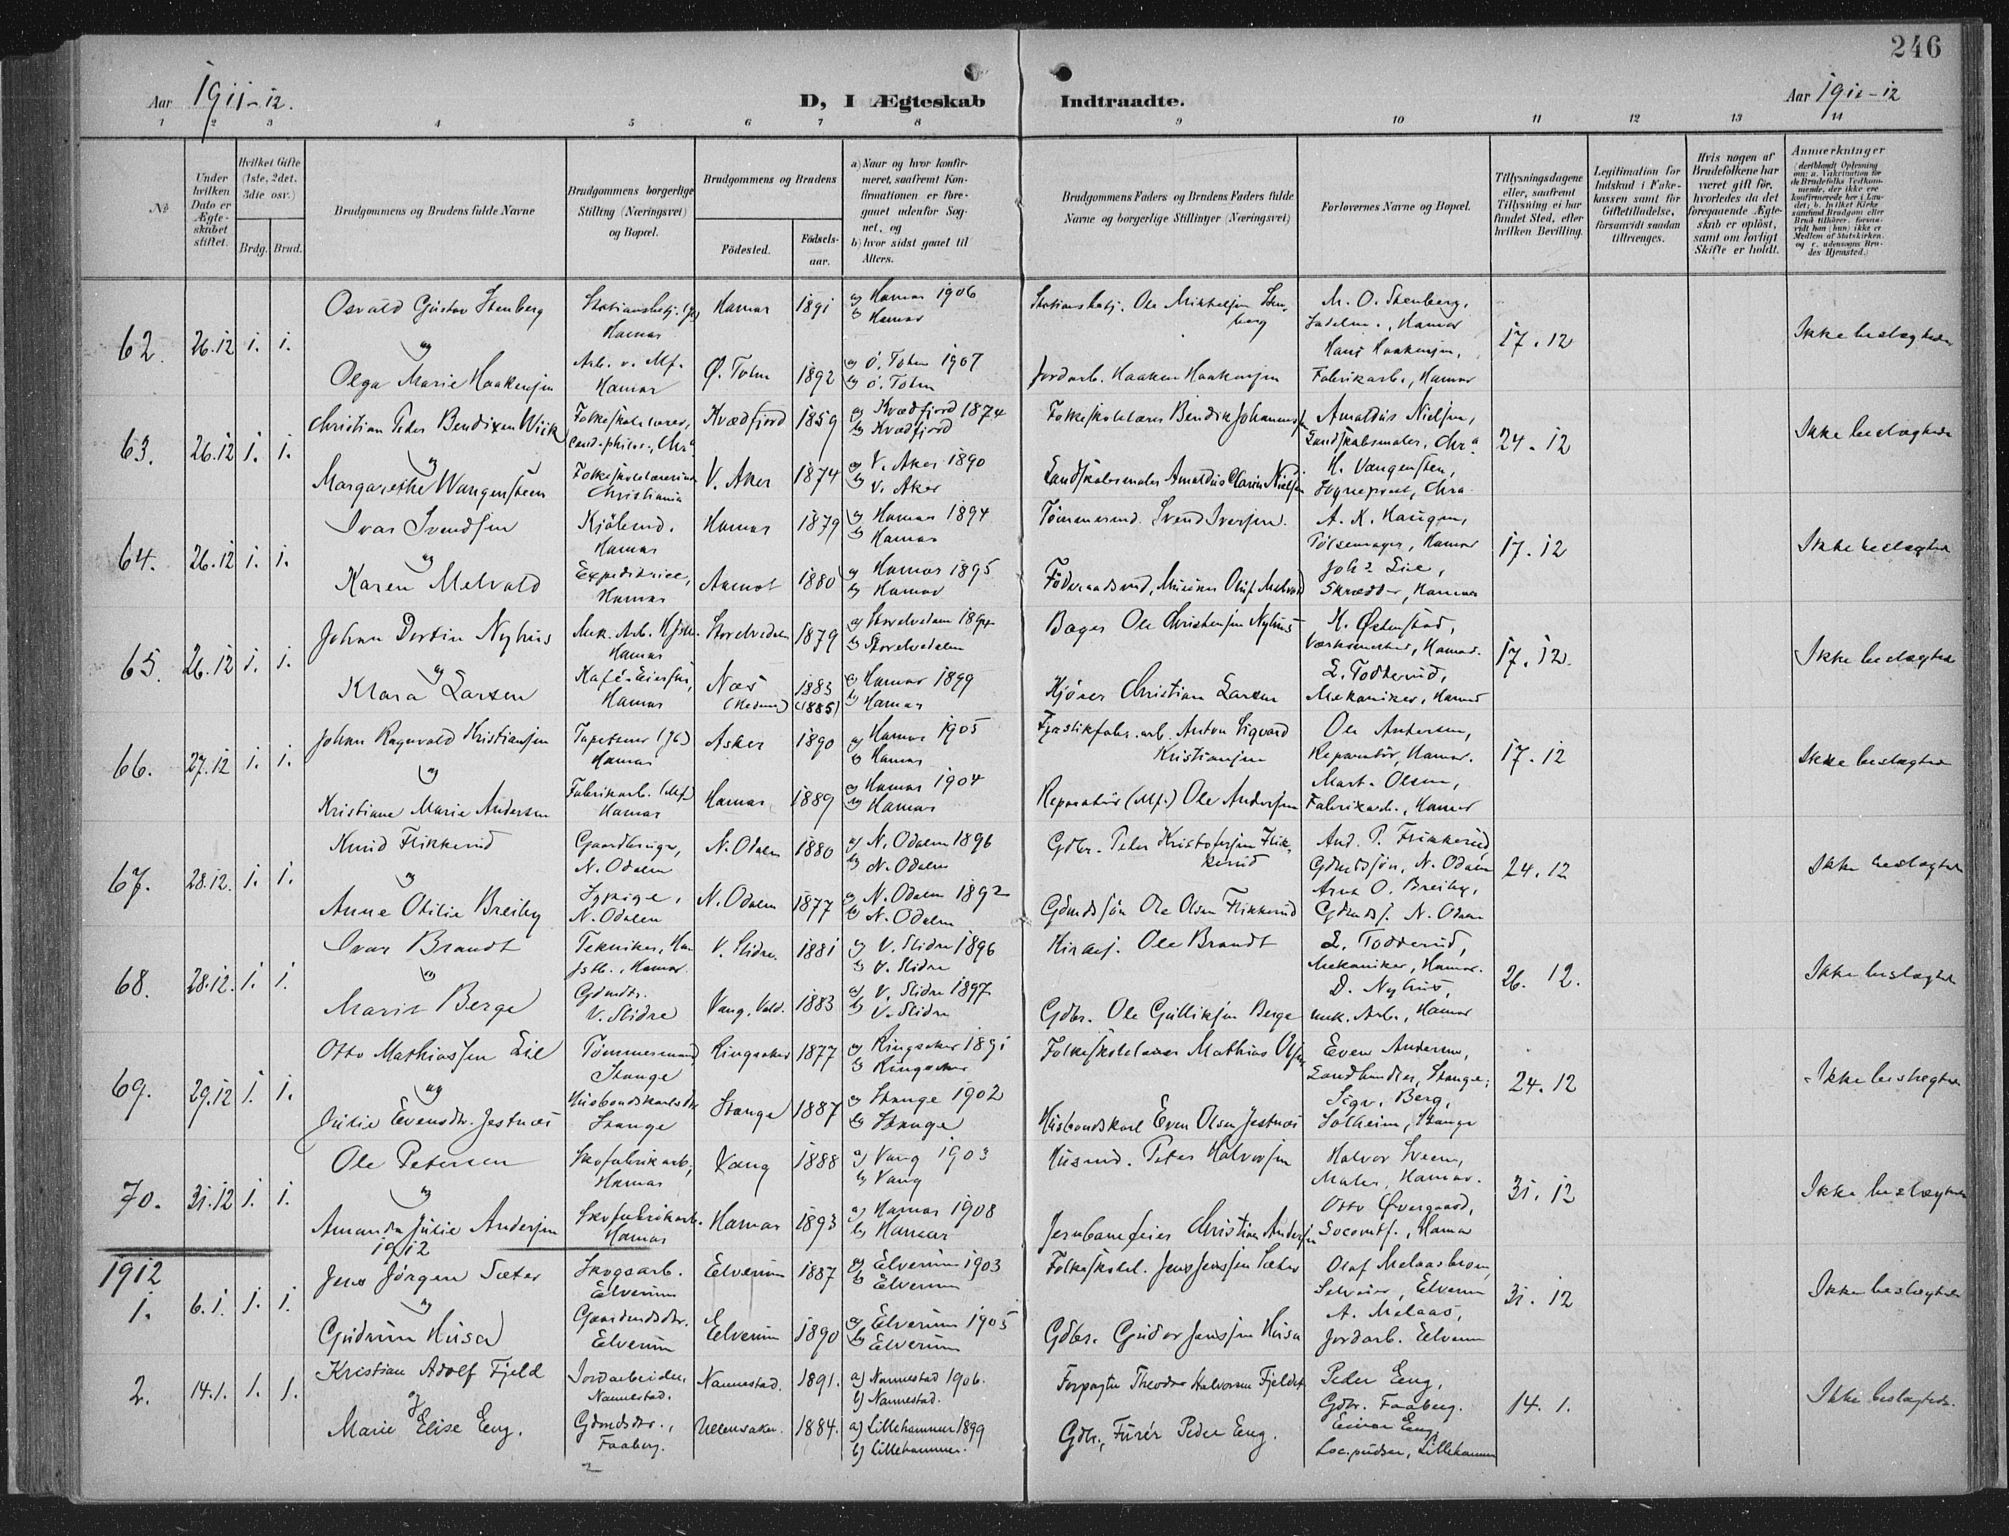 246
Aar 1911-12.
D, I Ægteskab Indtraadte.
Aar 1911-12
1 2 3 4 5 6 7 8 9 10 11 12 13 14
№
Under hvilken Dato er Ægteskabet stiftet.
Hvilket Gifte (1ste, 2det, 3die osv.)
Brdg. Brud.
Brudgommens og Brudens fulde Navne
Brudgommens borgerlige Stilling (Næringsvei) og Bopæl.
Brudgommens og Brudens
Fødested. Fødselsaar.
a) Naar og hvor konfirmeret, saafremt Konfirmationen er foregaaet udenfor Sognet, og
b) hvor sidst gaaet til Alters.
Brudgommens Faders og Brudens Faders fulde Navne og borgerlige Stillinger (Næringsvei)
Forlovernes Navne og Bopæl.
Tillysningsdagene eller, saafremt Tillysning ei har fundet Sted, efter hvilken Bevilling.
Legitimation for Indskud i Enkekassen samt for Giftetilladelse, forsaavidt saadan tiltrænges.
Hvis nogen af Brudefolkene har været gift før, hvorledes da det foregaaende Ægteskab er opløst, samt om lovligt Skifte er holdt.
Anmærkninger
62. 26.12 1. 1.
Osvald Gustav Stenberg
Hamar
Hamar 1891
a) Hamar 1906
b) Hamar
Ole Mikkelsen Stenberg
M. O. Stenberg,
Hamar
17.12
Ikke beslægtede
og
Olga Marie Haakensen
Arb. v. Mf.
Hamar
Ø. Toten 1892
a) Ø. Toten 1907
b) Ø. Toten
Jordarb. Haaken Haakensen
Hans Haakensen,
Fabrikarb., Hamar
63. 26.12 1. 1.
Christian Peder Bendixen Wiik
Folkeskolelærer,
Cand. philos., Chra
Kvædfjord 1859
a) Kvædfjord 1874
b) Kvædfjord
Folkeskolelærer Bendik Johannessen
Amaldus Nielsen,
Landskabsmaler, Chra
24.12
Ikke beslægtede
og
Margarethe Wangensteen
Folkeskolelærerinde
Christiania
V. Aker 1874
a) V. Aker 1890
b) V. Aker
Landskabsmaler Amaldus Clarin Nielsen
H. Vangensten,
Sogneprest, Chra.
64. 26.12 1. 1.
Ivar Svendsen
Hamar
Hamar 1879
a) Hamar 1894
b) Hamar
Tømmermd. Svend Iversen.
A. K. Haugen,
Pølsemager, Hamar
17.12
Ikke beslægtede
og
Karen Melvold
Expeditrice,
Hamar
Aamot 1880
a) Hamar 1895
b) Hamar
Føderaadsmd., Murer Oluf Melvold
Johs Lie,
Skrædder, Hamar
65. 26.12 1. 1.
Johan Dortin Nyhus
Mek. Arb. Hjstb.
Hamar
Storelvedalen 1879
a) Storelvedalen 1894
b) Storelvedalen
Bager Ole Christensen Nyhus
K. Østenstad,
Værksmester, Hamar.
17.12.
Ikke beslægtede
og
Klara Larsen
Kafé-Eierske,
Hamar
Næs (Hedem.) 1883 (1885)
a) Hamar 1899
b) Hamar
Kjører Christian Larsen
L. Todderud,
Mekaniker, Hamar
66. 27.12 1. 1.
Johan Ragnvald Kristiansen
Tapetserer
Hamar
Asker 1890
a) Hamar 1905
b) Hamar
Anton Sigvard
Kristiansen
Ole Andersen,
Reparatør, Hamar.
17.12
Ikke beslægtede
og
Kristiane Marie Andersen
Fabrikarb. (Mf)
Hamar
Hamar 1889
a) Hamar 1904
b) Hamar
Reparatør (Mf.) Ole Andersen
Mart. Olsen,
Fabrikarb., Hamar
67. 28.12. 1. 1.
Knud Flikkerud
Gaardbruger,
N. Odalen
N. Odalen 1880
a) N. Odalen 1896
b) N. Odalen
Gdbr. Peter Kristofersen Flikkerud
And. P. Flikkerud
Gdmdssøn, N. Odalen
24.12
Ikke beslægtede
og
Anne Otilie Breiby
Sypige,
N. Odalen
N. Odalen 1877
a) N. Odalen 1892
b) N. Odalen
Gdmdssøn Ole Olsen Flikkerud
Arne O. Breiby,
Gdmdss. N. Odalen
68. 28.12. 1. 1.
Ivar Brandt
Tekniker,
Hamar.
V. Slidre. 1881
a) V. Slidre 1896
b) V. Slidre
Ole Brandt
L. Todderud,
Mekaniker, Hamar.
26. 12.
Ikke beslægtede
og
Marit Berge
Gdmdtr.
V. Slidre
Vang, Vald. 1883
a) V. Slidre 1897
b) V. Slidre
Gdbr. Ole Gulliksen Berge
D. Nyhus,
mek. Arb., Hamar
69. 29.12 1. 1.
Otto Mathiassen Lie
Tømmermand,
Stange
Ringsaker 1877
a) Ringsaker 1891
b) Ringsaker
Folkeskolelærer Mathias Olsen
Even Andersen,
Landhandler, Stange;
24.12
Ikke beslægtede
og
Julie Evensdtr. Jestnæs
Husbondskarlsdtr.
Stange
Stange 1887
a) Stange 1902
b) Stange
Husbondskarl Even Olsen Jestnæs
Sigv. Berg,
Solheim, Stange
70. 31.12 1. 1.
Ole Petersen
Skofabrikarb,
Hamar
Vang 1888
a) Vang 1903
b) Vang
Husmd. Peter Halvorsen
Halvor Sveen,
Maler, Hamar.
31.12
Ikke beslægtede
og
Amanda Julie Andersen
Skofabrikarb.
Hamar
Hamar 1893
a) Hamar 1908
b) Hamar
Jernbanefeier Christian Andersen
Otto Øvergaard,
Locomtf., Hamar
1912
1912
1. 6.1. 1. 1.
Jens Jørgen Sæter
Skogsarb.
Elverum
Elverum 1887
a) Elverum 1903
b) Elverum
Folkeskolel. Jens Jensen Sæter
Olaf Melaasbroen
Selveier, Elverum
31.12
Ikke beslægtede
og
Gudrun Husa
Gaardmdsdtr.
Elverum
Elverum 1890
a) Elverum 1905
b) Elverum
Gdbr. Gudor Jensen Husa
A. Melaas,
Jordarb. Elverum
2. 14.1. 1. 1.
Kristian Adolf Fjeld
Jordarbeider,
Nannestad.
Nannestad. 1891.
a) Nannestad 1906.
b) Nannestad.
Forpagter Theodor Halvorsen Fjeldet
Peder Eng,
Gdbr. Faaberg.
14.1.
Ikke beslægtede.
og
Marie Elise Eng.
Gdmdsdtr.,
Faaberg.
Ullensaker. 1884.
a) Lillehammer 1899
b) Lillehammer.
Gdbr., Furér Peder Eng.
Einar Eng,
Loc.pudser, Lillehammer